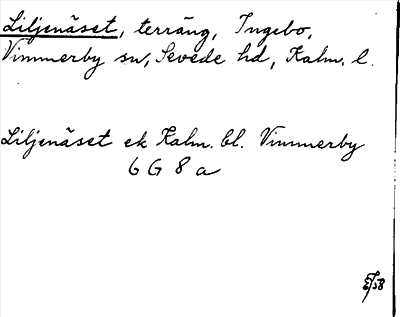 Liljenäset, terräng, Ingebo,
Vimmerby sn, Sevede hd, Kalm. l.
Liljenäset ek Kalm. bl. Vimmerby
6 G 8 a